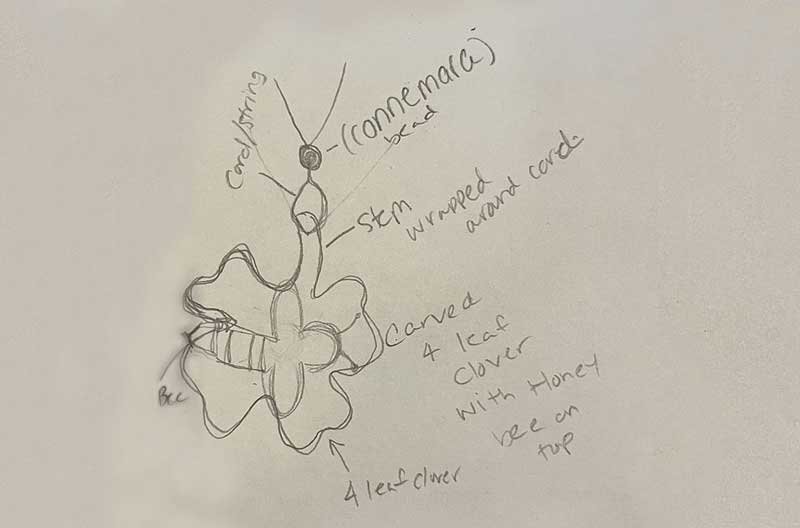 Cord/String
(Connemara)
bead
Stem
wrapped
around cord
Carved
4 leaf
clover
with Honey
bee on
top
Bee
4 leaf clover